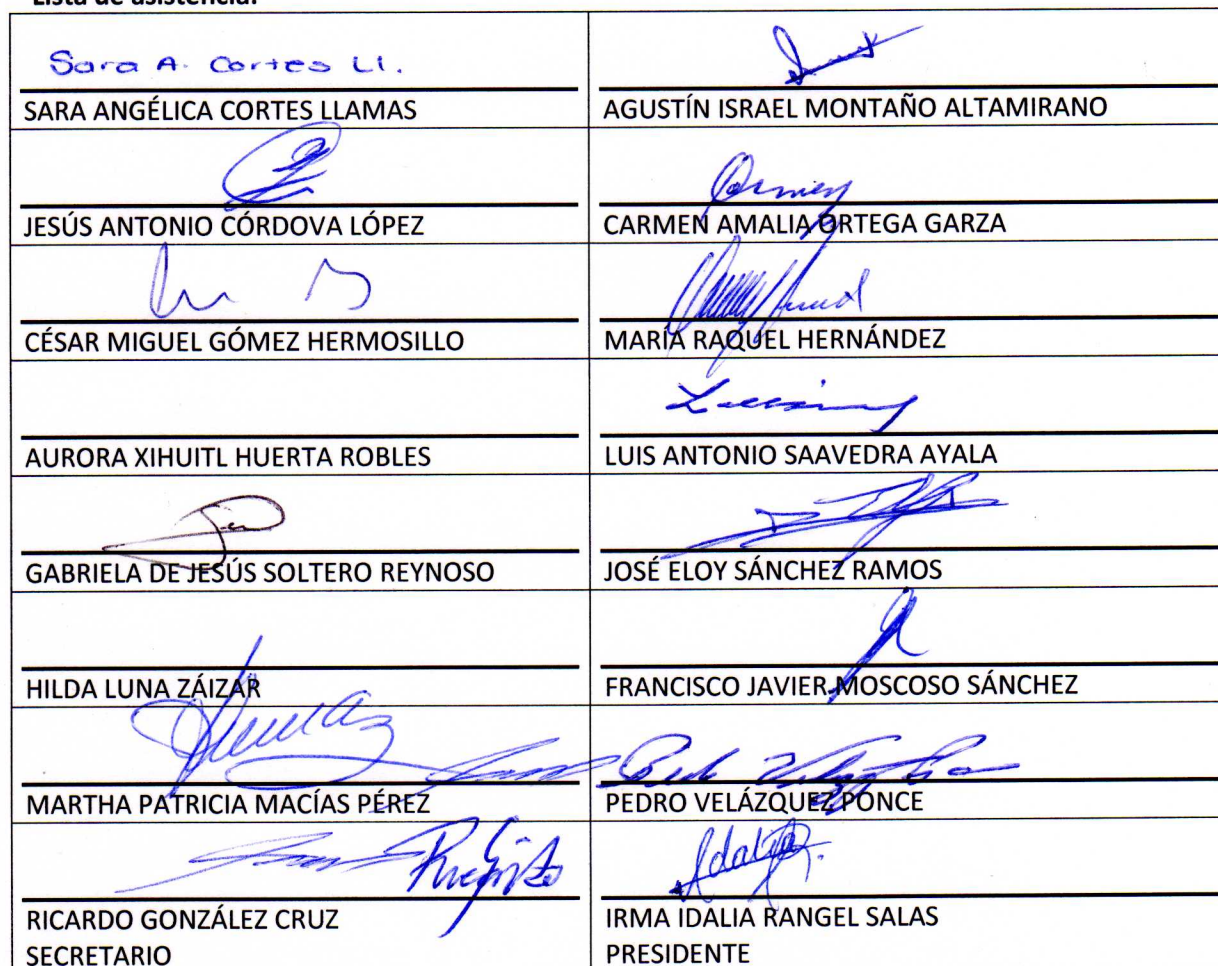 Lista de asistencia:
Sara A. Cortes Ll.
SARA ANGÉLICA CORTES LLAMAS
AGUSTÍN ISRAEL MONTAÑO ALTAMIRANO
JESÚS ANTONIO CÓRDOVA LÓPEZ
CARMEN AMALIA ORTEGA GARZA
CÉSAR MIGUEL GÓMEZ HERMOSILLO
MARÍA RAQUEL HERNÁNDEZ
AURORA XIHUITL HUERTA ROBLES
LUIS ANTONIO SAAVEDRA AYALA
GABRIELA DE JESÚS SOLTERO REYNOSO
JOSÉ ELOY SÁNCHEZ RAMOS
HILDA LUNA ZÁIZAR
FRANCISCO JAVIER MOSCOSO SÁNCHEZ
MARTHA PATRICIA MACÍAS PÉREZ
PEDRO VELÁZQUEZ PONCE
RICARDO GONZÁLEZ CRUZ
SECRETARIO
Idalia R.
IRMA IDALIA RANGEL SALAS
PRESIDENTE